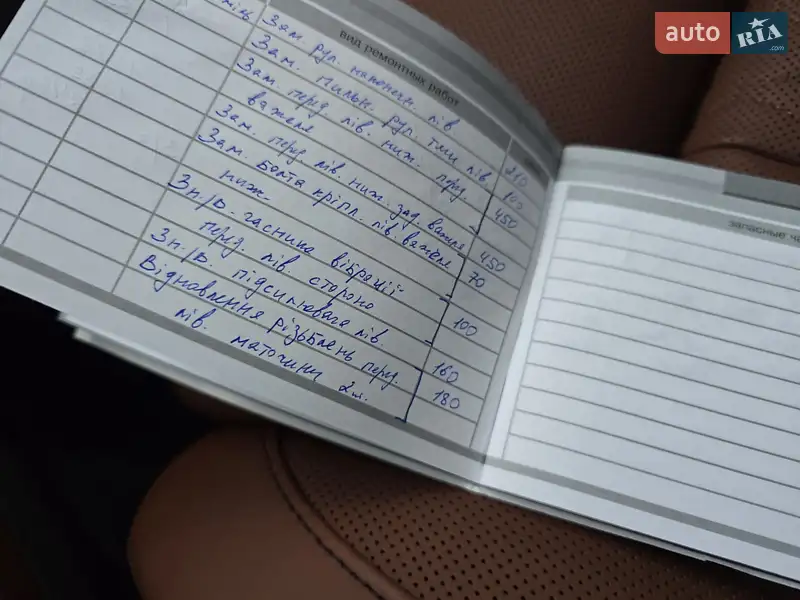 auto RIA .com
вид ремонтных работ
Зам. рул. наконечн. лів 210
Зам. пильн. рул. тяги лів. 100
Зам. перд. лів. ниж. перд. 450
важеля
Зам. перд. лів. ниж. зад. важеля 450
Зам. болта кріпл. лів. важеля 70
ниж.
Зп./в. гасника вібрації 100
перд. лів. стороно
Зп./в. підсилювача лів. 160
Відновлення різьблень перд. 180
лів. маточини 2 шт.
запасные ча